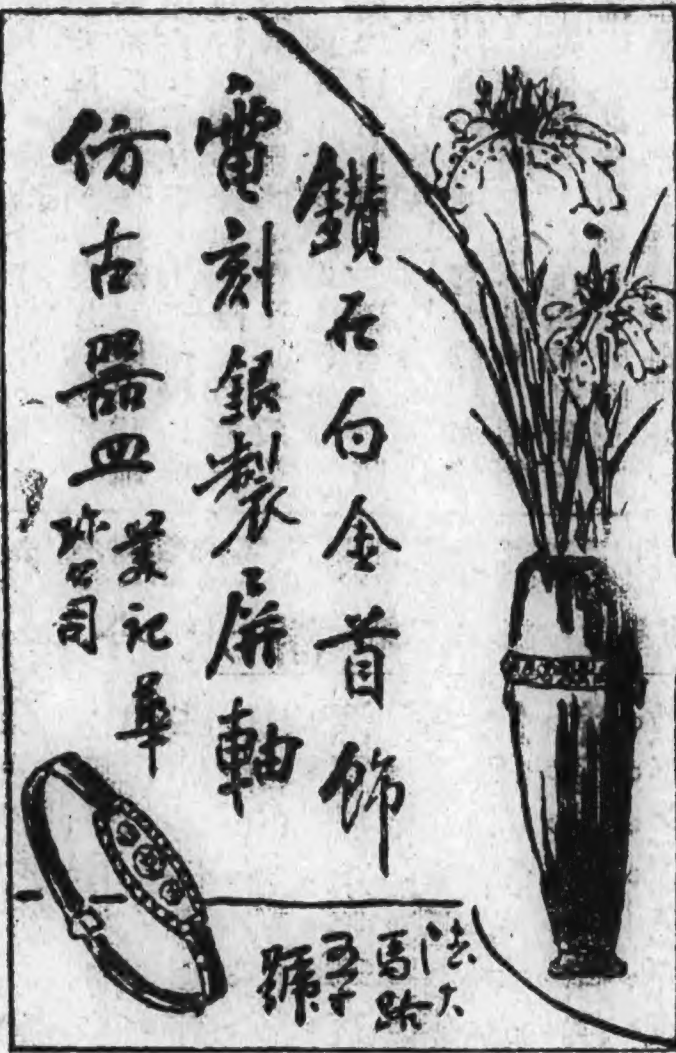 鑽石白金首飾
電刻銀製屏軸
仿古器皿
業記華
珍公司
法大
馬路
五十
號